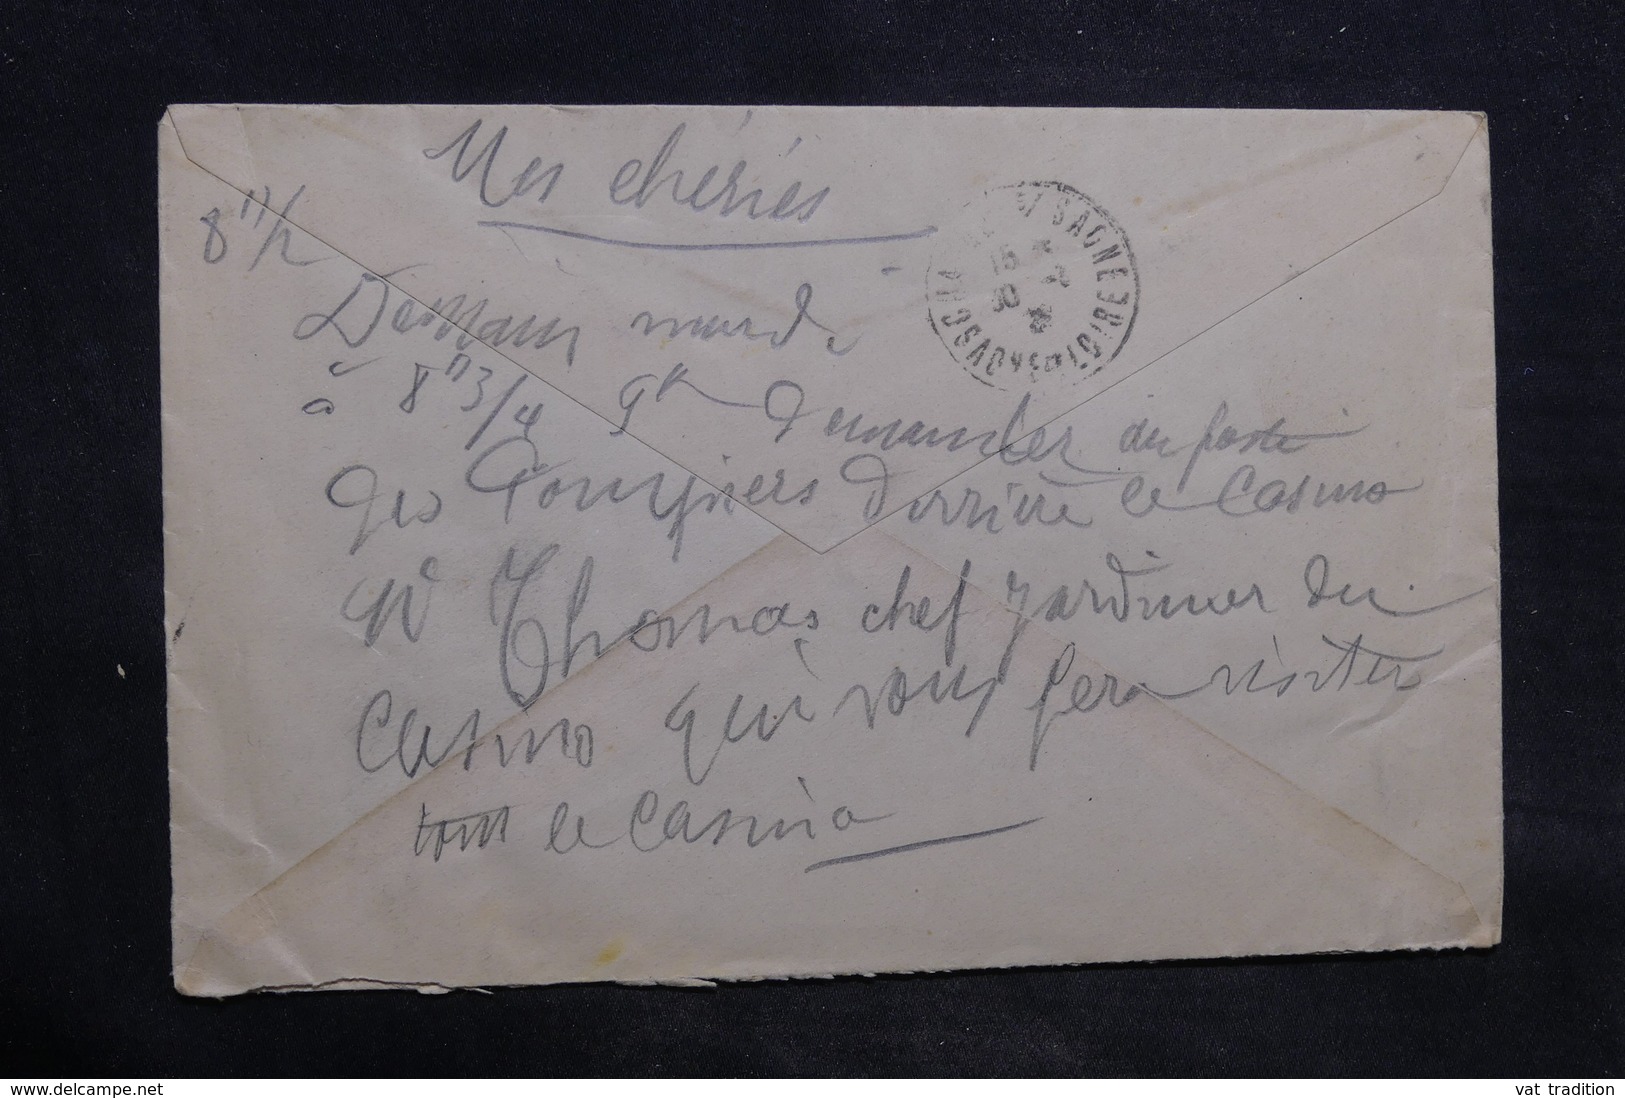 Mes chéries
8 h 1/2
Demain mardi
à 8 h 3/4 9 h demander au poste
des Pompiers derrière le Casino
Mr Thomas chef jardinier du
Casino qui vous fera visiter
tout le Casino
SAGNE
LOIRE
15
30
www.delcampe.net
vat tradition